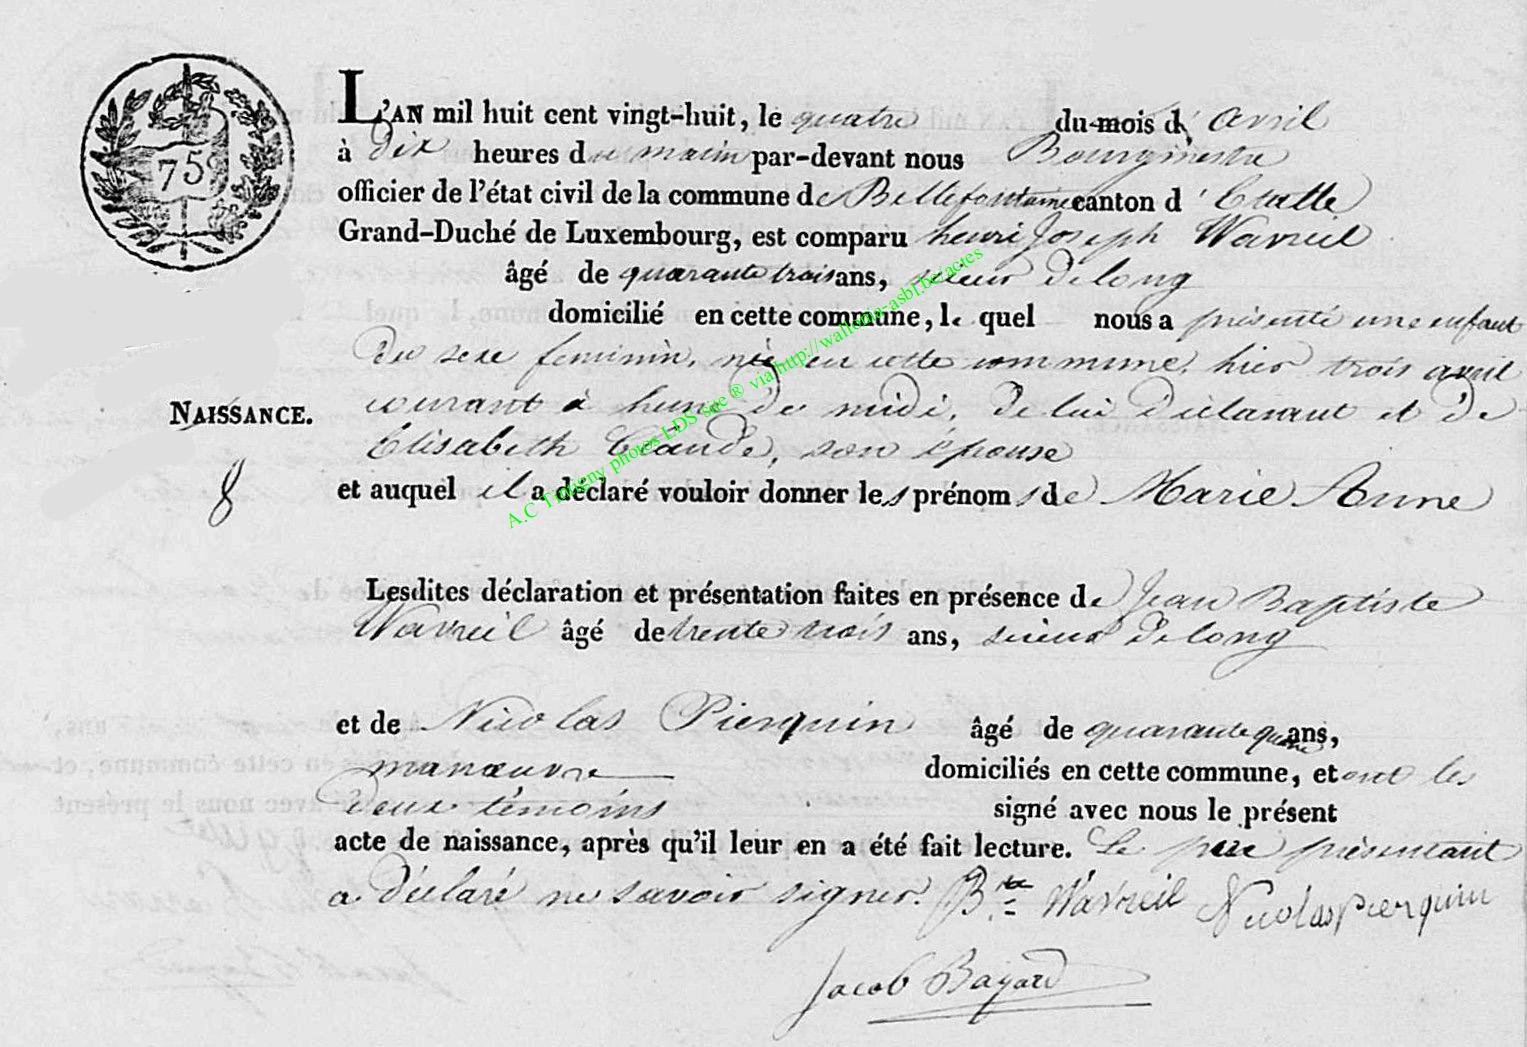 75
L'AN mil huit cent vingt-huit, le quatre du mois d'avril
à dix heures du matin par-devant nous Bourgmestre
officier de l'état civil de la commune de Bellefontaine canton d'Etalle
Grand-Duché de Luxembourg, est comparu henri Joseph Wavreil
âgé de quarante trois ans, scieur de long
domicilié en cette commune, le quel nous a présenté une enfant
du sexe feminin, née en cette commune, hier trois avril
courant à hune de midi, de lui déclarant et de
NAISSANCE.
Elisabeth Claude, son épouse
8
et auquel il a déclaré vouloir donner les prénoms de Marie Anne
Lesdites déclaration et présentation faites en présence de Jean Baptiste
Wavreil âgé de trente trois ans, scieur de long
et de Nicolas Pierquin âgé de quarante quatre ans,
manœuvre domiciliés en cette commune, et ont les
deux témoins signé avec nous le présent
acte de naissance, après qu'il leur en a été fait lecture. Le père présentant
a déclaré ne savoir signer. Bte Wavreil Nicolas pierquin
Jacob Bayard
A.C Tintigny photos LDS site ® via http://wallonia-asbl.be/actes